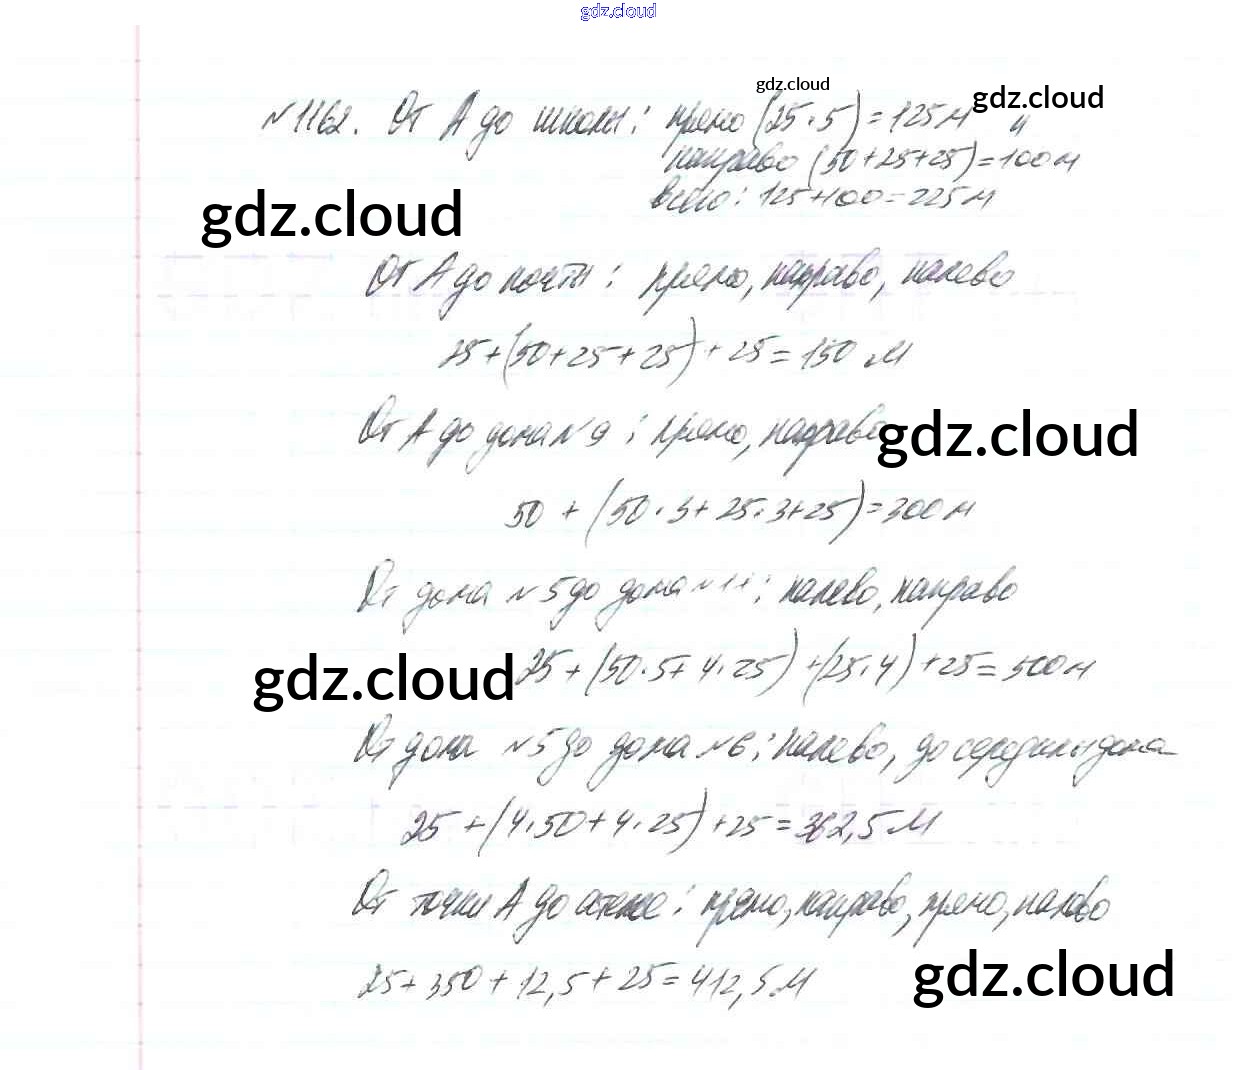 gdz.cloud
gdz.cloud
gdz.cloud
№1162. От А до школы: прямо (25·5)=125м и
направо (50+25+25)=100м
всего: 125+100=225м
gdz.cloud
От А до почты: прямо, направо, налево
25+(50+25+25)+25=150 м
От А до дома №9: прямо, направо
gdz.cloud
50+(50·3+25·3+25)=300м
От дома №5 до дома №11: налево, направо
gdz.cloud
25+(50·5+4·25)+(25·4)+25=500м
От дома №5 до дома №6: налево, до середины дома
25+(4·50+4·25)+25=362,5м
От точки А до ателье: прямо, направо, прямо, налево
gdz.cloud
25+350+12,5+25=412,5м